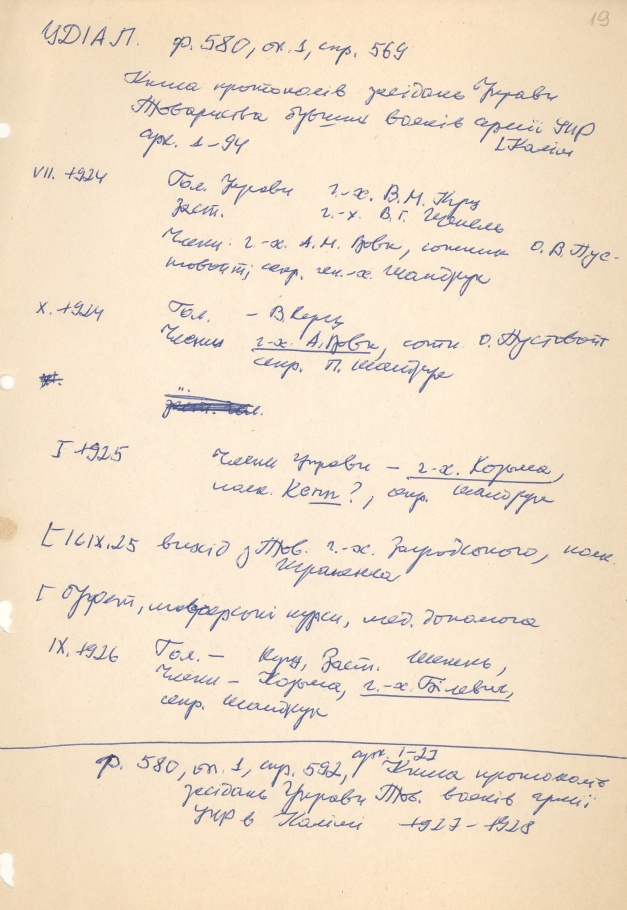 19
ЦДІАЛ. ф. 580, оп. 1, спр. 569
Книга протоколів засідань Управи
Товариства бувших вояків армії УНР
арк. 1-94 [Каліш
VII. 1924 Гол. Управи г.-х. В.М. Кущ
Заст. г.-х. В.Г.
Члени: г.-х. А.М. Вовк, сотник О.В. Пус-
товойт; секр. ген.-х. Шандрук
X. 1924 Гол. - В Кущ
Члени г-х. А. Вовк, сотн. О. Пустовойт
секр. П. Шандрук
I 1925 Члени Управи - г-х. Козьма,
полк. Кепп?, секр. Шандрук
[ 16 IX. 25 вихід з Тов. г.-х. Загродського, полк.
[ буфет, шоферські курси, мед. допомога
IX. 1926 Гол. - Кущ, Заст.
Члени - Козьма, г.-х. Білевич,
секр. Шандрук
арк. 1-27
ф. 580, оп. 1, спр. 592, Книга протоколів
засідань Управи Тов. вояків армії
УНР в Каліші 1927-1928